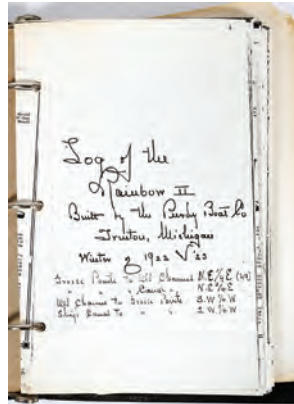 Log of the
Rainbow II
Built by the Purdy Boat Co
Trenton, Michigan
Winter of 1922 & '23
Grosse Pointe To Upl Channel N.E. 1/4 E (49)
" " " Canal " N.E. 1/4 E
Upl Channel to Grosse Pointe S.W. 1/4 W
Ships Canal To " " S.W. 1/4 W